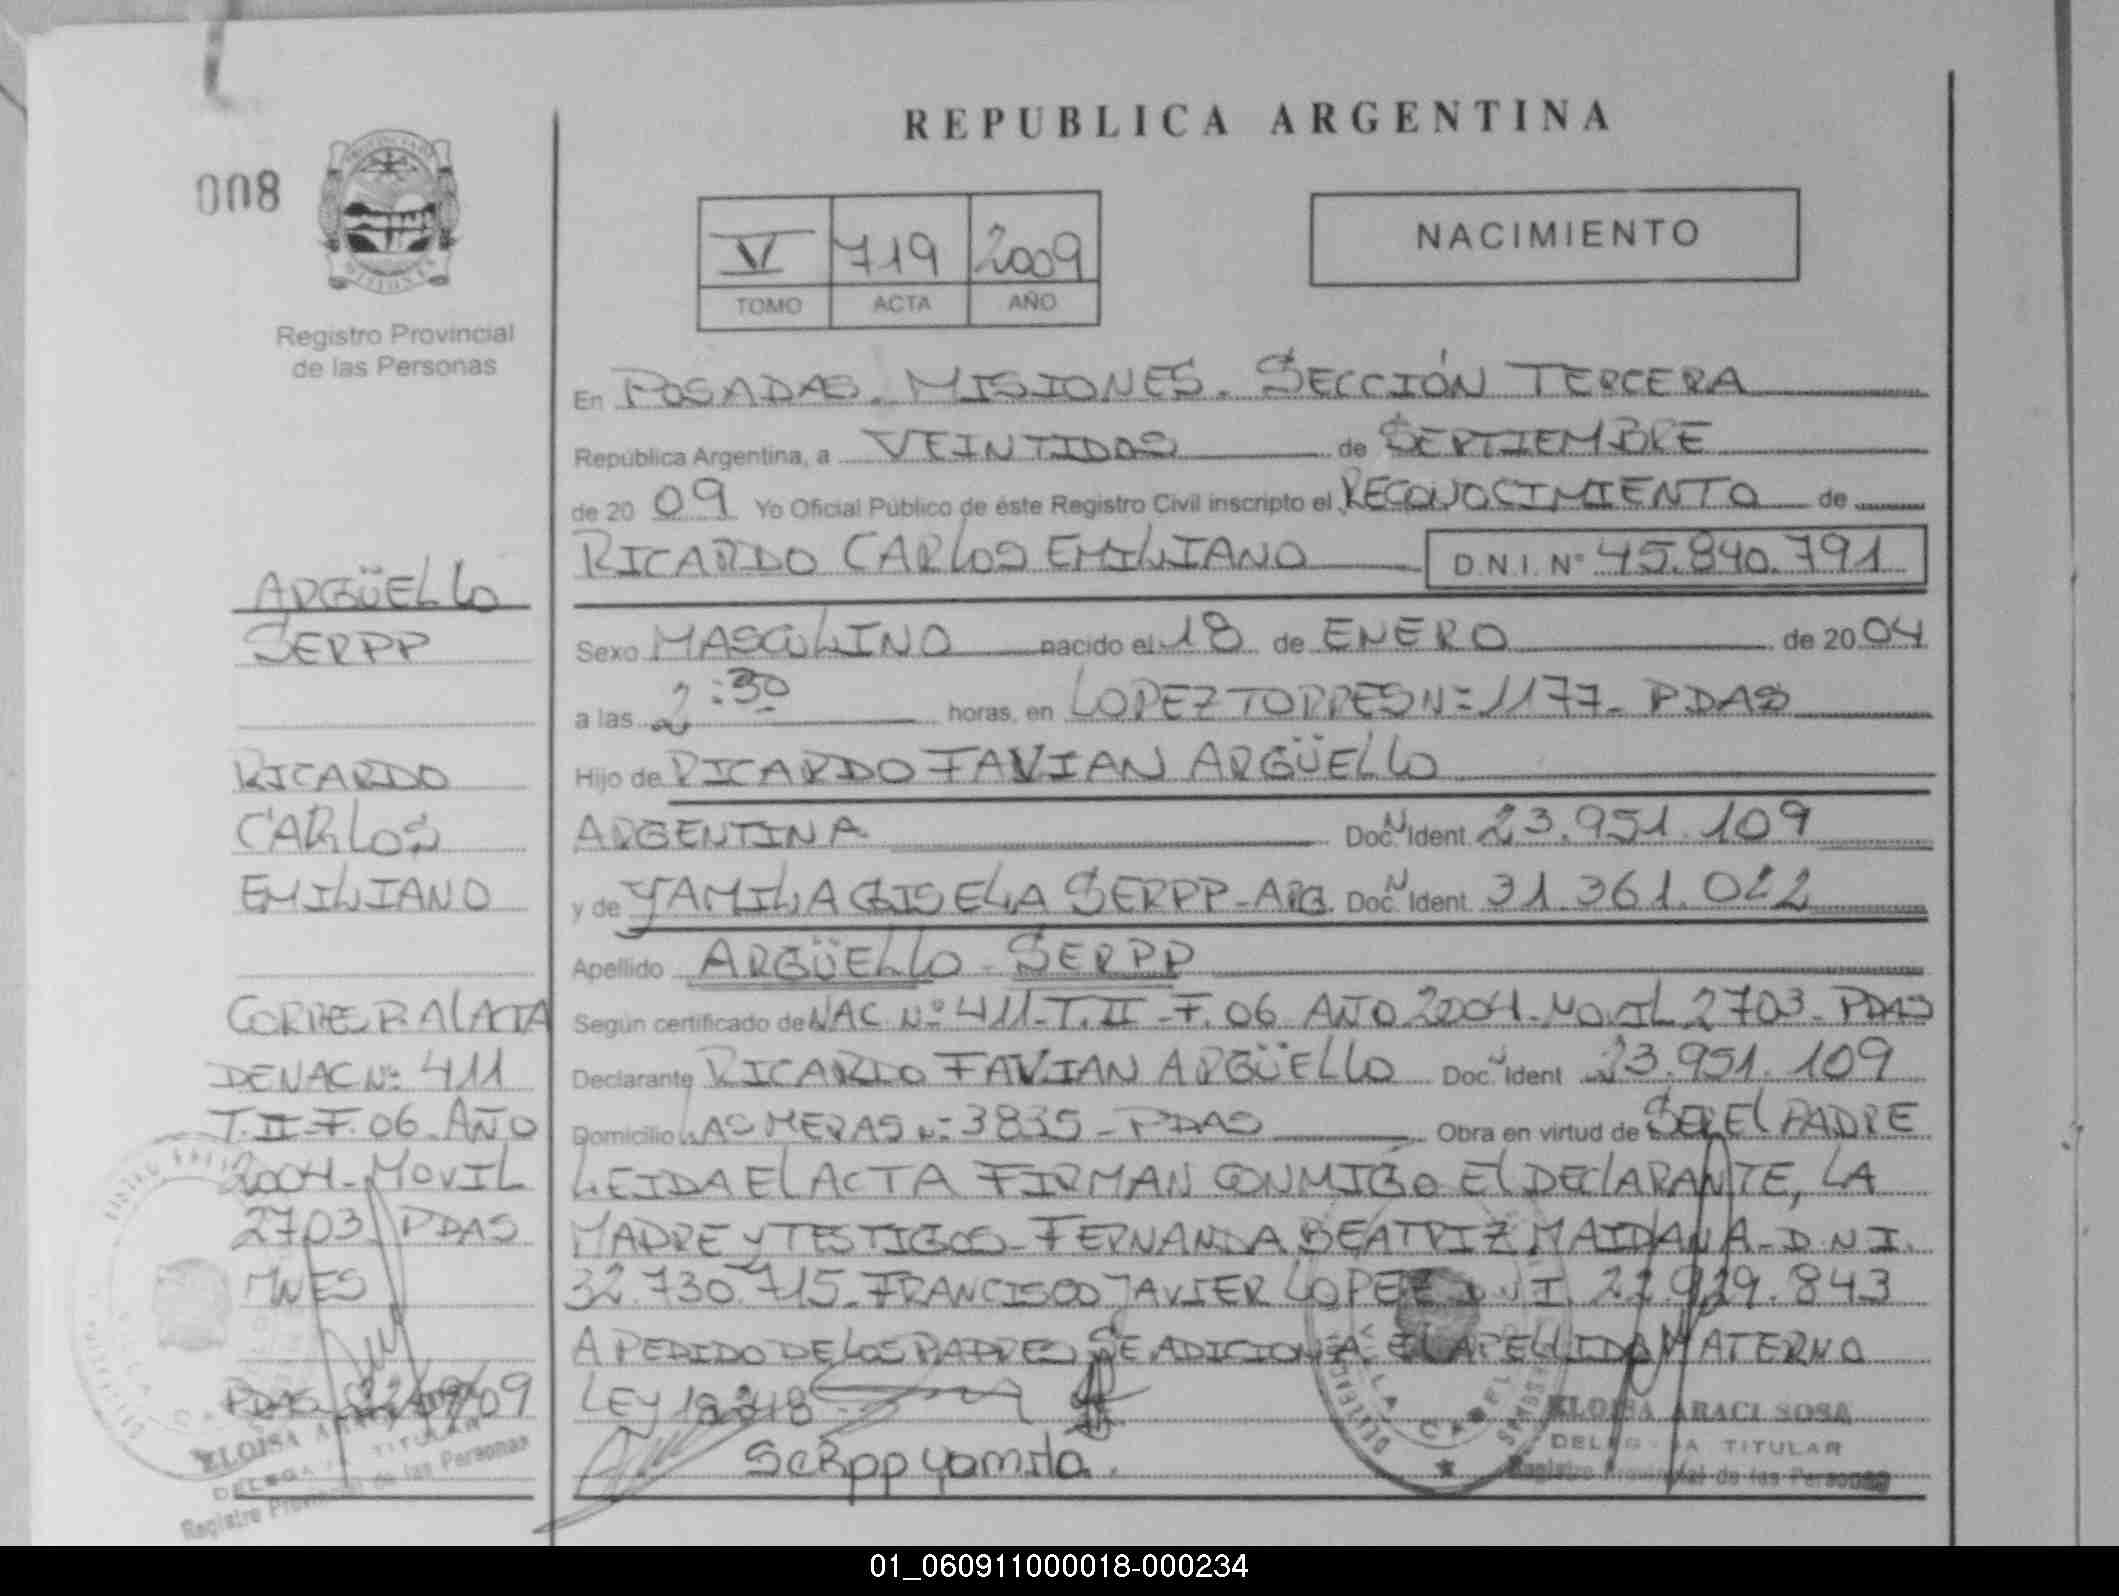 REPUBLICA ARGENTINA
008
PROVINCIA DE MISIONES
Registro Provincial
de las Personas
V 719 2009
TOMO ACTA AÑO
NACIMIENTO
En POSADAS. MISIONES. SECCIÓN TERCERA
República Argentina, a VEINTIDOS de SEPTIEMBRE
de 20 09 Yo Oficial Público de éste Registro Civil inscripto el RECONOCIMIENTO de
RICARDO CARLOS EMILIANO D.N.I. Nº 45.840.791
Sexo MASCULINO nacido el 18 de ENERO de 20 04
a las 2:30 horas, en LOPEZ TORRES Nº 1177- PDAS
Hijo de RICARDO FAVIAN ARGÜELLO
ARGENTINA Doc. N Ident. 23.951.109
y de YAMILA GISELA SERPP-ARG. Doc. N Ident. 31.361.022
Apellido ARGÜELLO - SERPP
Según certificado de NAC. Nº 411-T.II-F.06 AÑO 2004-MOVIL 2703-PDAS
Declarante RICARDO FAVIAN ARGÜELLO Doc. N Ident 23.951.109
Domicilio LAS HERAS Nº 3835-PDAS Obra en virtud de SER EL PADRE
LEIDA EL ACTA FIRMAN CONMIGO EL DECLARANTE, LA
MADRE Y TESTIGOS-FERNANDA BEATRIZ MAIDANA-D.N.I.
32.730.715-FRANCISCO JAVIER LOPEZ D.N.I.
A PEDIDO DE LOS PADRES SE ADICIONA EL APELLIDO MATERNO
LEY 18248
SeRpp yamila.
ELOISA ARACI SOSA
DELEGADA TITULAR
Registro Provincial de las Personas
ARGÜELLO
SERPP
RICARDO
CARLOS
EMILIANO
CORRE P. AL ACTA
DE NAC Nº 411
T.II-F.06-AÑO
2004-MOVIL
2703 PDAS
MNES
PDAS 22/09/09
ELOISA
DELEGADA TITULAR
Registro Provincial de las Personas
01_060911000018-000234